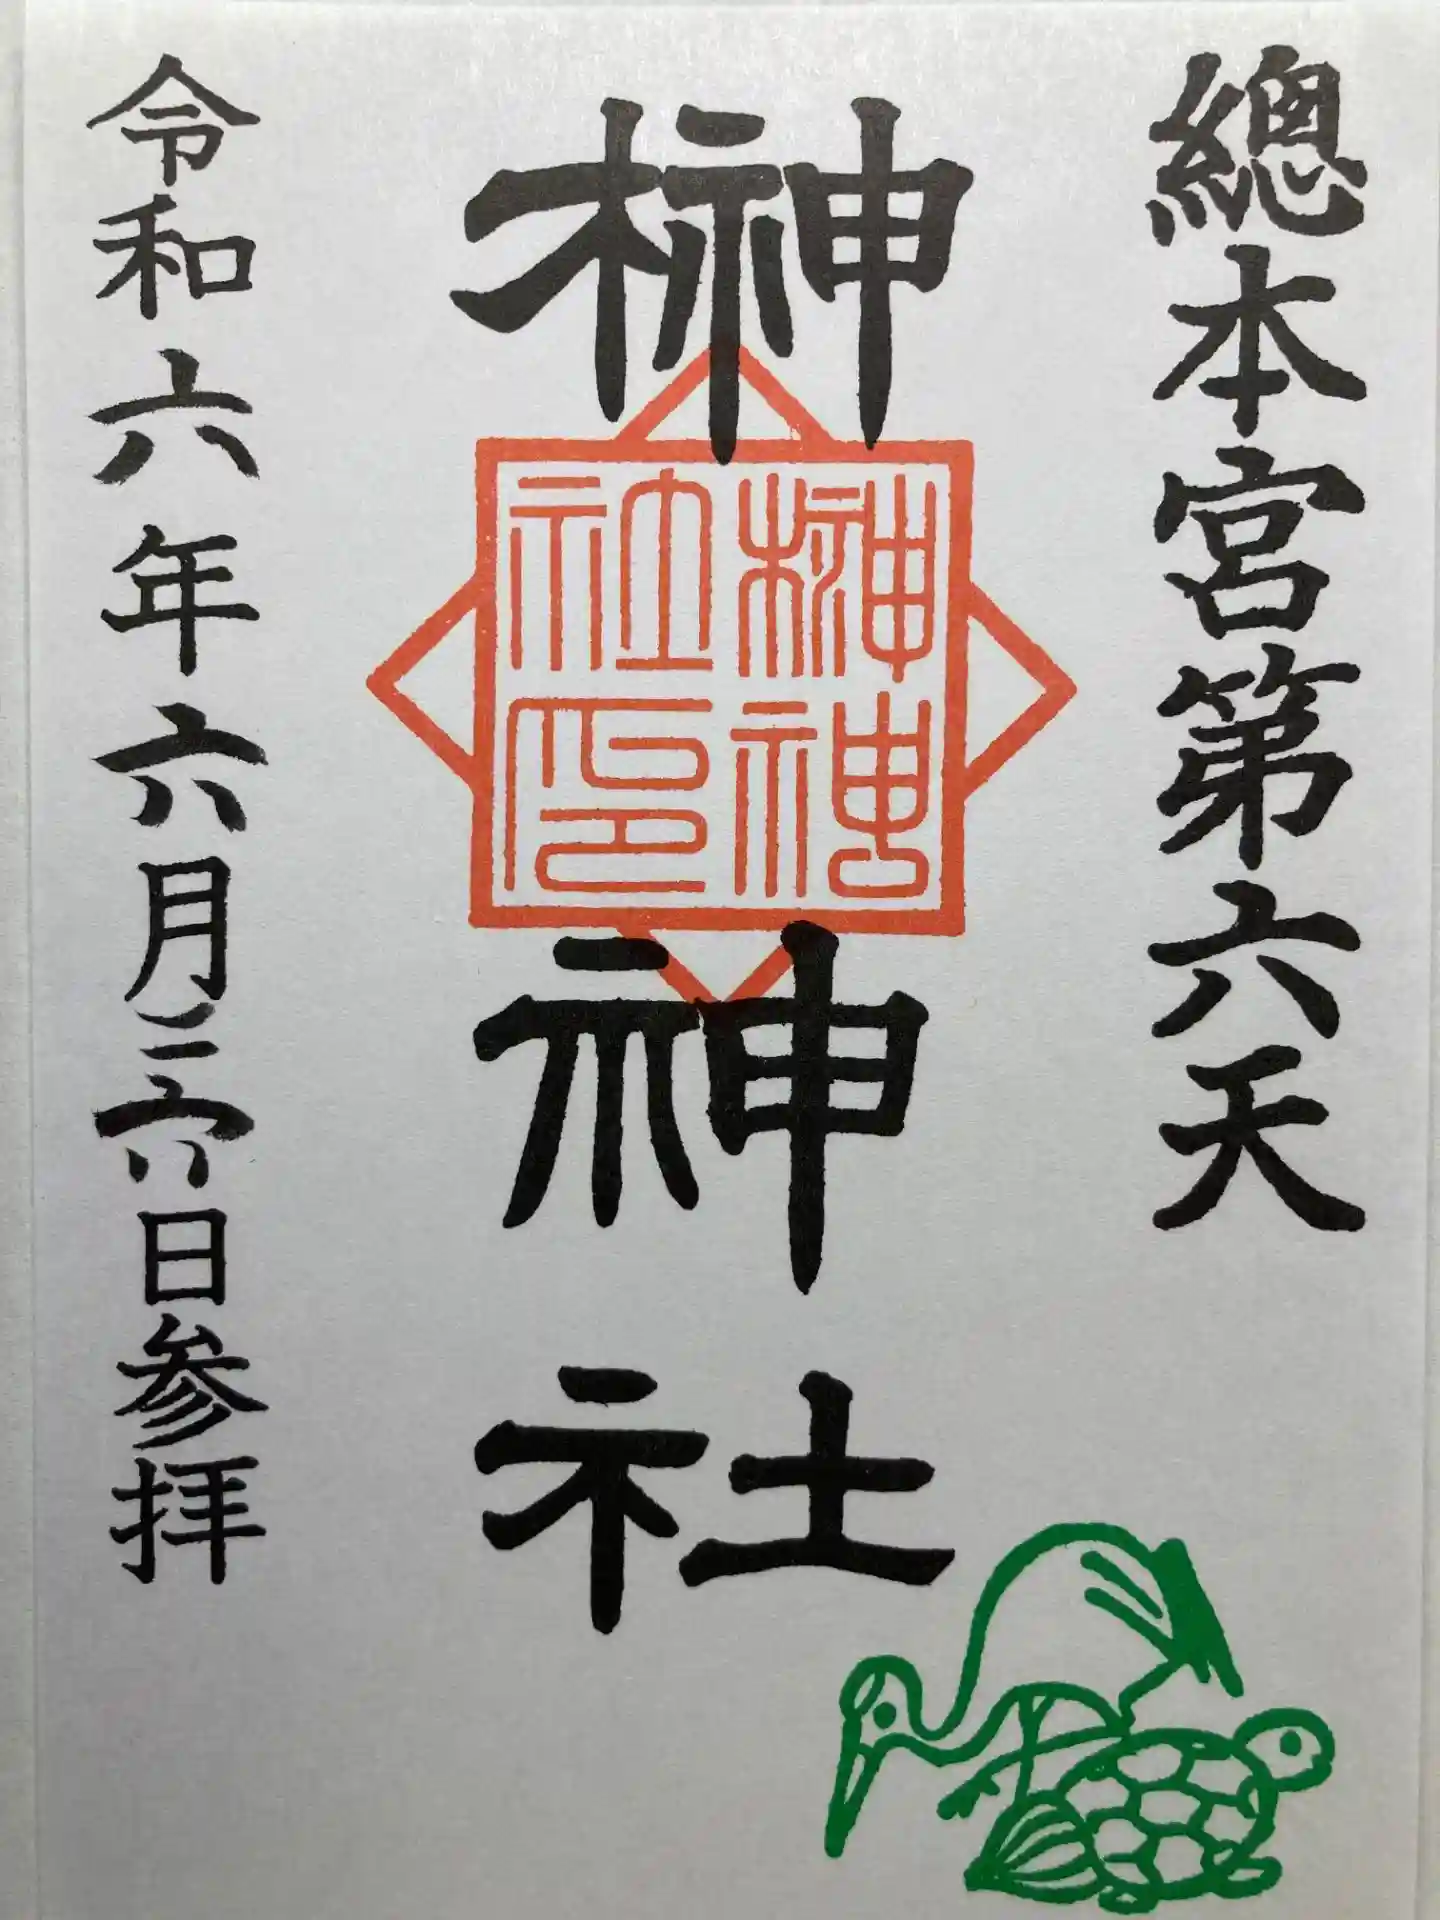 總本宮第六天
榊神社
榊神社印
令和六年六月二六日参拝